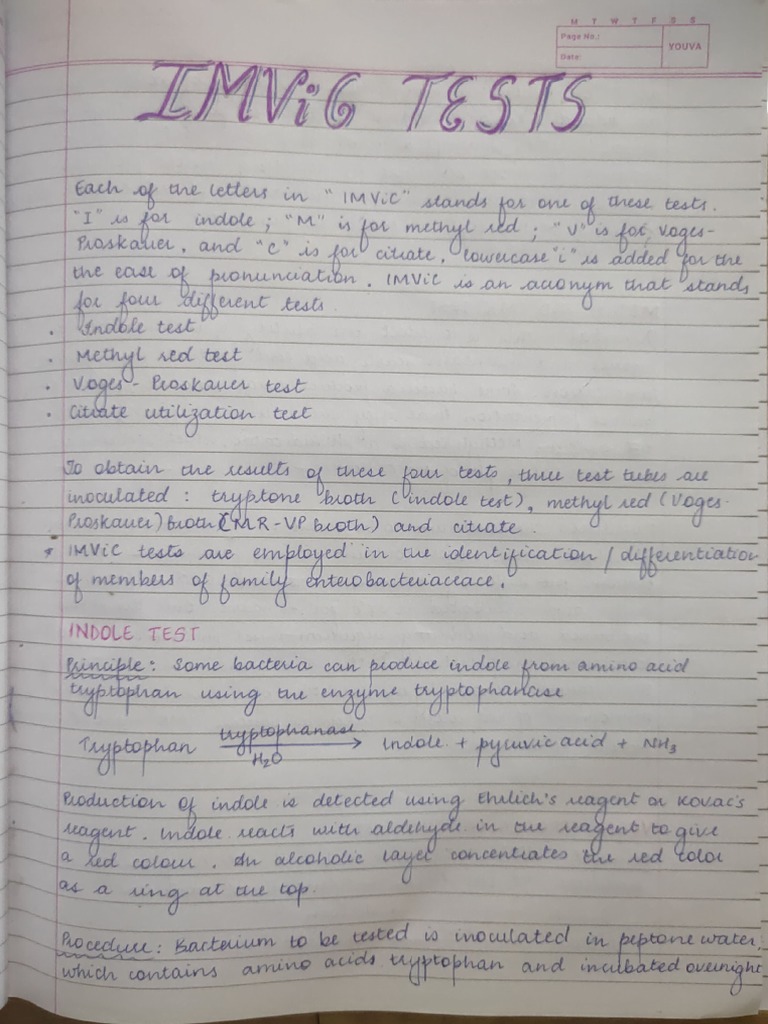 M T W T F S S
Page No.:
Date:
YOUVA
IMViC TESTS
Each of the letters in "IMViC" stands for one of these tests.
"I" is for indole; "M" is for methyl red; "V" is for Voges-
Proskauer, and "C" is for citrate, lowercase "i" is added for the
the ease of pronunciation. IMViC is an acronym that stands
for four different tests.
. Indole test
. Methyl red test
. Voges - Proskauer test
. Citrate utilization test
To obtain the results of these four tests, three test tubes are
inoculated : tryptone broth (indole test), methyl red (Voges-
Proskauer) broth (MR-VP broth) and citrate.
* IMViC tests are employed in the identification / differentiation
of members of family enterobacteriaceace.
INDOLE TEST
Principle: Some bacteria can produce indole from amino acid
tryptophan using the enzyme tryptophanase
Tryptophan tryptophanase → Indole + pyruvic acid + NH₃
H₂O
Production of indole is detected using Ehrlich's reagent or Kovac's
reagent. Indole reacts with aldehyde in the reagent to give
a red colour. An alcoholic layer concentrates the red color
as a ring at the top.
Procedure: Bacterium to be tested is inoculated in peptone water,
which contains amino acids tryptophan and incubated overnight